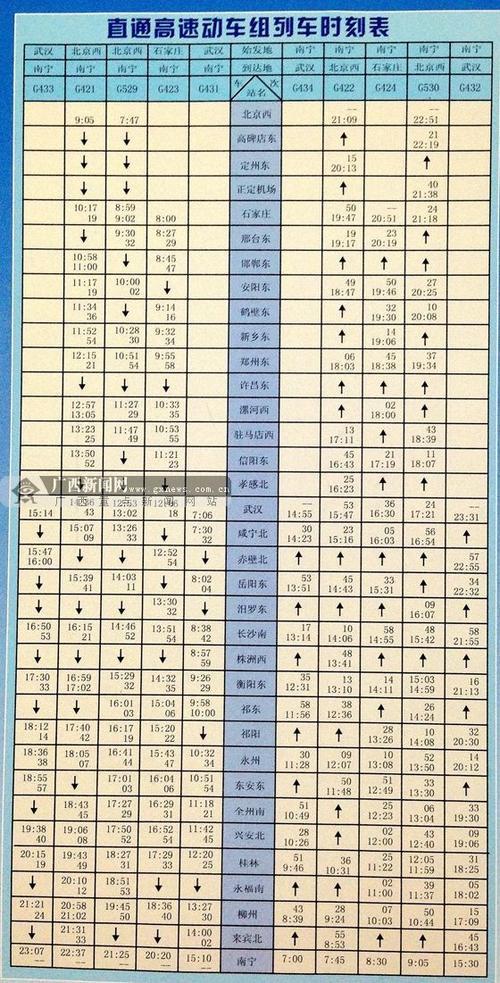 直通高速动车组列车时刻表
武汉 北京西 北京西 石家庄 武汉 始发地 南宁 南宁 南宁 南宁 南宁
南宁 南宁 南宁 南宁 南宁 到达地 武汉 北京西 石家庄 北京西 武汉
G433 G421 G529 G423 G431 车次 站名 G434 G422 G424 G530 G432
9:05 7:47 北京西 -- 21:09 -- 22:51
↓ ↓ 高碑店东 ↑ 21 22:19
↓ ↓ 定州东 15 20:13 ↑
↓ ↓ 正定机场 ↑ 40 21:38
10:17 19 8:59 9:02 8:00 石家庄 50 19:47 -- 20:51 24 21:18
↓ 9:30 32 8:27 29 邢台东 19 19:17 23 20:19 ↑
10:58 11:00 ↓ 8:45 47 邯郸东 ↑ ↑ ↑
11:17 19 10:00 02 ↓ 安阳东 49 18:47 50 19:46 27 20:25
11:34 36 ↓ 9:14 16 鹤壁东 ↑ 32 19:30 10 20:08
11:52 54 10:28 30 9:32 34 新乡东 ↑ 14 19:06 ↑
12:15 21 10:51 54 9:55 58 郑州东 06 18:03 45 18:38 37 19:34
↓ ↓ ↓ 许昌东 ↑ ↑ ↑
12:57 13:05 11:27 29 10:33 35 漯河西 ↑ 02 18:00 ↑
13:23 25 11:47 49 10:53 55 驻马店西 13 17:11 ↑ 43 18:39
13:50 52 ↓ 11:21 23 信阳东 45 16:43 21 17:19 11 18:07
↓ 孝感北 25 16:23 ↑ ↑
广西新闻网
www.gxnews.com.cn
广西重点新闻网站
15:14 43 13:02 18 7:06 武汉 -- 14:55 53 15:47 36 16:30 24 17:21 -- 23:31
↓ 15:07 09 13:26 33 ↓ 7:30 32 咸宁北 30 14:23 23 15:16 05 16:08 56 16:54 ↑
15:47 16:00 ↓ ↓ 12:52 54 ↓ 赤壁北 ↑ ↑ ↑ ↑ 57 22:55
↓ 15:39 41 14:03 11 ↓ 8:02 04 岳阳东 53 13:51 45 14:43 33 15:31 ↑ 34 22:32
↓ ↓ ↓ 13:30 32 ↓ 汨罗东 ↑ ↑ ↑ 09 16:07 ↑
16:50 53 16:15 21 14:46 52 13:51 54 8:38 42 长沙南 17 13:14 10 14:06 58 14:55 48 15:42 58 21:55
↓ ↓ ↓ ↓ 8:57 59 株洲西 ↑ 48 13:41 ↑ ↑ ↑
17:30 33 16:59 17:02 15:29 32 14:32 35 9:26 29 衡阳东 35 12:31 13 13:10 14 14:11 15:03 14:59 16 21:13
↓ ↓ 16:01 03 15:04 06 9:58 10:00 祁东 58 11:56 38 12:36 ↑ 26 14:24 ↑
18:12 14 17:40 42 16:17 19 15:20 22 ↓ 祁阳 ↑ ↑ 28 13:26 10 14:08 32 20:30
18:36 38 18:05 07 16:41 44 15:43 47 10:32 34 永州 30 11:28 09 12:07 10 13:08 52 13:50 14 20:12
18:55 57 ↓ 17:01 03 16:04 06 10:51 54 东安东 ↑ 50 11:48 51 12:49 33 13:30 ↑
↓ 18:43 45 17:27 29 16:29 31 11:18 21 全州南 51 10:49 ↑ 25 12:23 06 13:04 33 19:30
19:38 40 19:06 08 17:50 52 16:52 54 11:42 45 兴安北 28 10:26 ↑ 02 12:00 43 12:40 09 19:06
20:15 19 19:43 49 18:27 31 17:29 33 12:20 25 桂林 51 9:46 36 10:31 25 11:22 12:05 11:59 31 18:25
↓ 20:10 12 18:51 53 ↓ ↓ 永福南 ↑ ↑ 02 11:00 39 11:37 05 18:02
21:21 24 20:58 21:02 19:45 50 18:36 40 13:27 30 柳州 43 8:39 28 9:24 07 10:03 50 10:44 15 17:09
↓ 21:31 33 ↓ ↓ 14:00 02 来宾北 ↑ 55 8:53 ↑ ↑ 45 16:43
23:07 -- 22:37 -- 21:25 -- 20:20 -- 15:10 -- 南宁 7:00 7:45 8:30 9:05 15:30